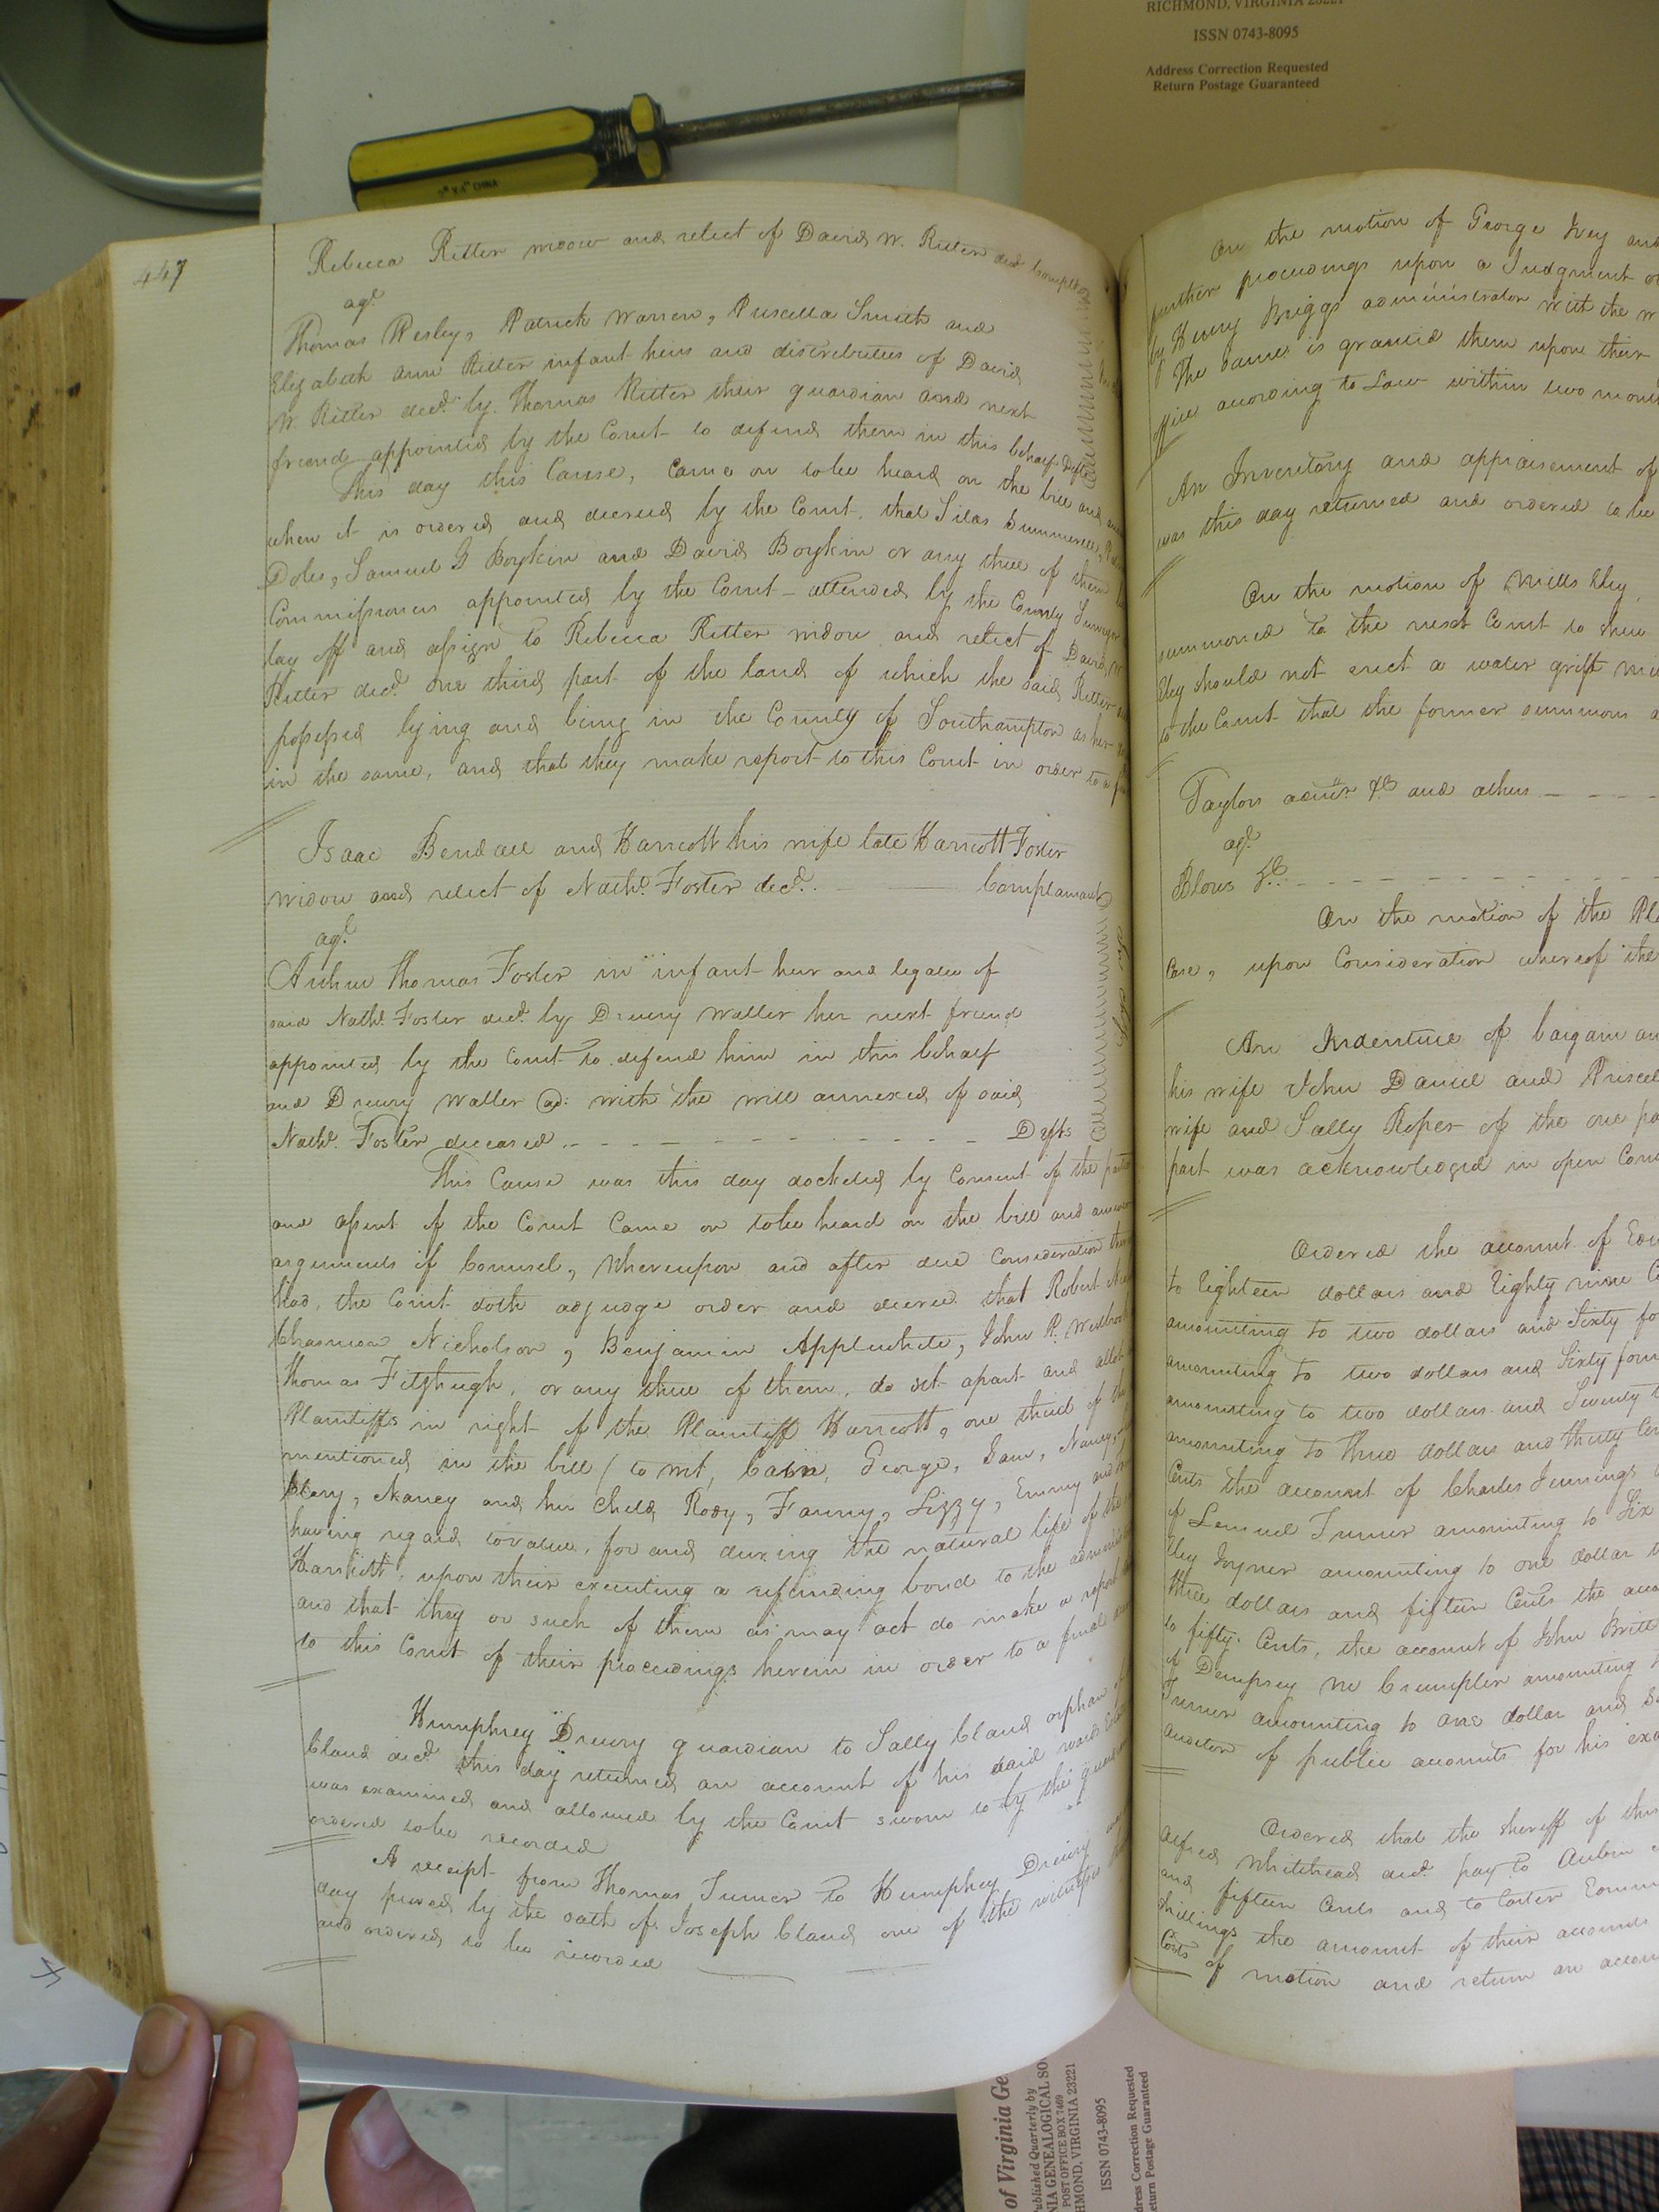 RICHMOND, VIRGINIA 23221
ISSN 0743-8095
Address Correction Requested
Return Postage Guaranteed
CHINA
447
Rebecca Ritter widow and relict of David W. Ritter decd Complt
agt
Thomas Presley, Patrick Warren, Priscilla Smith and
Elizabeth Ann Ritter infant heirs and distributees of David
W. Ritter decd by Thomas Ritter their guardian and next
friend appointed by the Court to defend them in this behalf Defts
This day this Cause, came on to be heard on the bill and
when it is ordered and decreed by the Court, that Silas Summerell,
Doles, Samuel G Boykin and David Boykin or any three of them
Commissioners appointed by the Court attended by the County Surveyor
lay off and assign to Rebecca Ritter widow and relict of David W
Ritter decd one third part of the land of which the said Ritter
possessed lying and being in the County of Southampton as her
in the same, and that they make report to this Court in order to a
Isaac Bendall and Harriott his wife late Harriott Foster
widow and relict of Nathl Foster decd. Complainants
agt
Arthur Thomas Foster in infant heir and legatee of
said Nathl Foster decd by Drewry Waller her next friend
appointed by the Court to defend him in this behalf
and Drewry Waller ad: with the will annexed of said
Nathl Foster deceased Defts
This Cause was this day docketed by Consent of the parties
and assent of the Court came on to be heard on the bill and answer
arguments of Counsel, Whereupon and after due Consideration
had, the Court doth adjudge order and decree that Robert
Chasmon Nicholson, Benjamin Applewhite, John R.
Thomas Fitzhugh, or any three of them, do set apart and allot
Plaintiffs in right of the Plaintiff Harriott, one third of the
mentioned in the bill (to wit, Cain, George, Sam, Nancy,
Mary, Nancy and her child, Rody, Fanny, Lizzy, Emmy and
having regard to value, for and during the natural life of the
Harriott, upon their executing a refunding bond to the
and that they or such of them as may act do make a report
to this Court of their proceedings herein in order to a final
Humphrey Drewry guardian to Sally Bland orphan of
Bland decd this day returned an account of his said wards
was examined and allowed by the Court sworn to by the guardian
ordered to be recorded
A receipt from Thomas Turner to Humphrey Drewry
day proved by the oath of Joseph Bland one of the witnesses
and ordered to be recorded
On the motion of George Ivey and
further proceedings upon a Judgment
by Henry Briggs administrator with the w
The same is granted them upon their
office according to Law within two months
An Inventory and appraisement of
was this day returned and ordered to be
On the motion of Mills Eley,
summoned to the next Court to shew
Eley should not erect a water grist mill
to the Court that the former summons
Taylors admr &c and others
agt
Blows &c
On the motion of the Pl
Case, upon Consideration whereof the
An Indenture of bargain an
his wife John Daniel and Priscil
wife and Sally Roper of the one pa
part was acknowledged in open Court
Ordered the account of Edw
to Eighteen dollars and Eighty nine C
amounting to two dollars and Sixty fo
amounting to two dollars and Sixty four
amounting to two dollars and Seventy
amounting to three dollars and thirty Cen
Cents the account of Charles Jennings
of Lemuel Turner amounting to Six
Eley Joyner amounting to one dollar
three dollars and fifteen Cents the acc
to fifty Cents, the account of John Britt
of Dempsey Mc Crumpler amounting
Turner amounting to one dollar and
auditor of public accounts for his exa
Ordered that the sheriff of this
Alfred Whitehead decd pay to
and fifteen Cents and to Carter
shillings the amount of their accounts
Costs of motion and return an account
of Virginia Ge
Published Quarterly by
NIA GENEALOGICAL SO
POST OFFICE BOX 7469
HMOND, VIRGINIA 23221
ISSN 0743-8095
dress Correction Requested
eturn Postage Guaranteed